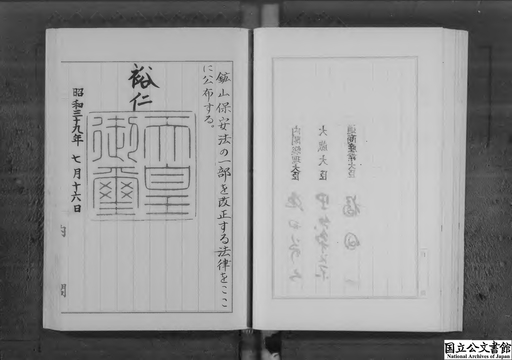 鉱山保安法の一部を改正する法律をここ
に公布する。
裕仁
天皇
御璽
昭和三十九年 七月十六日
内閣
通商産業大臣
大蔵大臣
内閣総理大臣
国立公文書館
National Archives of Japan